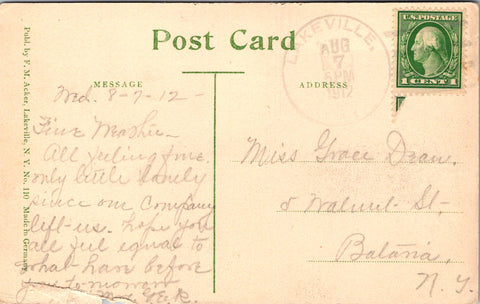 Post Card
MESSAGE
ADDRESS
Publ. by F. M. Acker, Lakeville, N. Y. No. 110 Made in Germany
LAKEVILLE,
AUG
7
5 PM
1912
U.S. POSTAGE
1 CENT 1
Wed. 8-7-12-
All feeling fine
only little lonely
since our company
left us. hope you
all feel equal to
what have before
you tomorrow
Miss Grace Dean.
5 Walnut St.
Batavia,
N. Y.